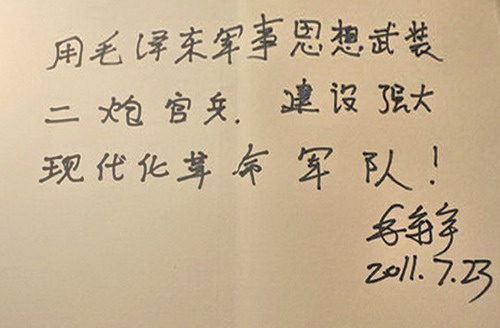 用毛泽东军事思想武装
二炮官兵. 建设强大
现代化革命军队!
毛新宇
2011.7.23